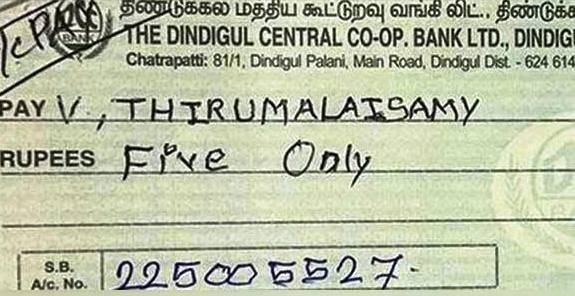 திண்டுக்கல் மத்திய கூட்டுறவு வங்கி லிட்.,
THE DINDIGUL CENTRAL CO-OP. BANK LTD.,
Chatrapatti: 81/1, Dindigul Palani, Main Road, Dindigul Dist. - 624 614
PAY V, THIRUMALAISAMY
RUPEES Five Only
S.B.
A/c. No. 225005527.